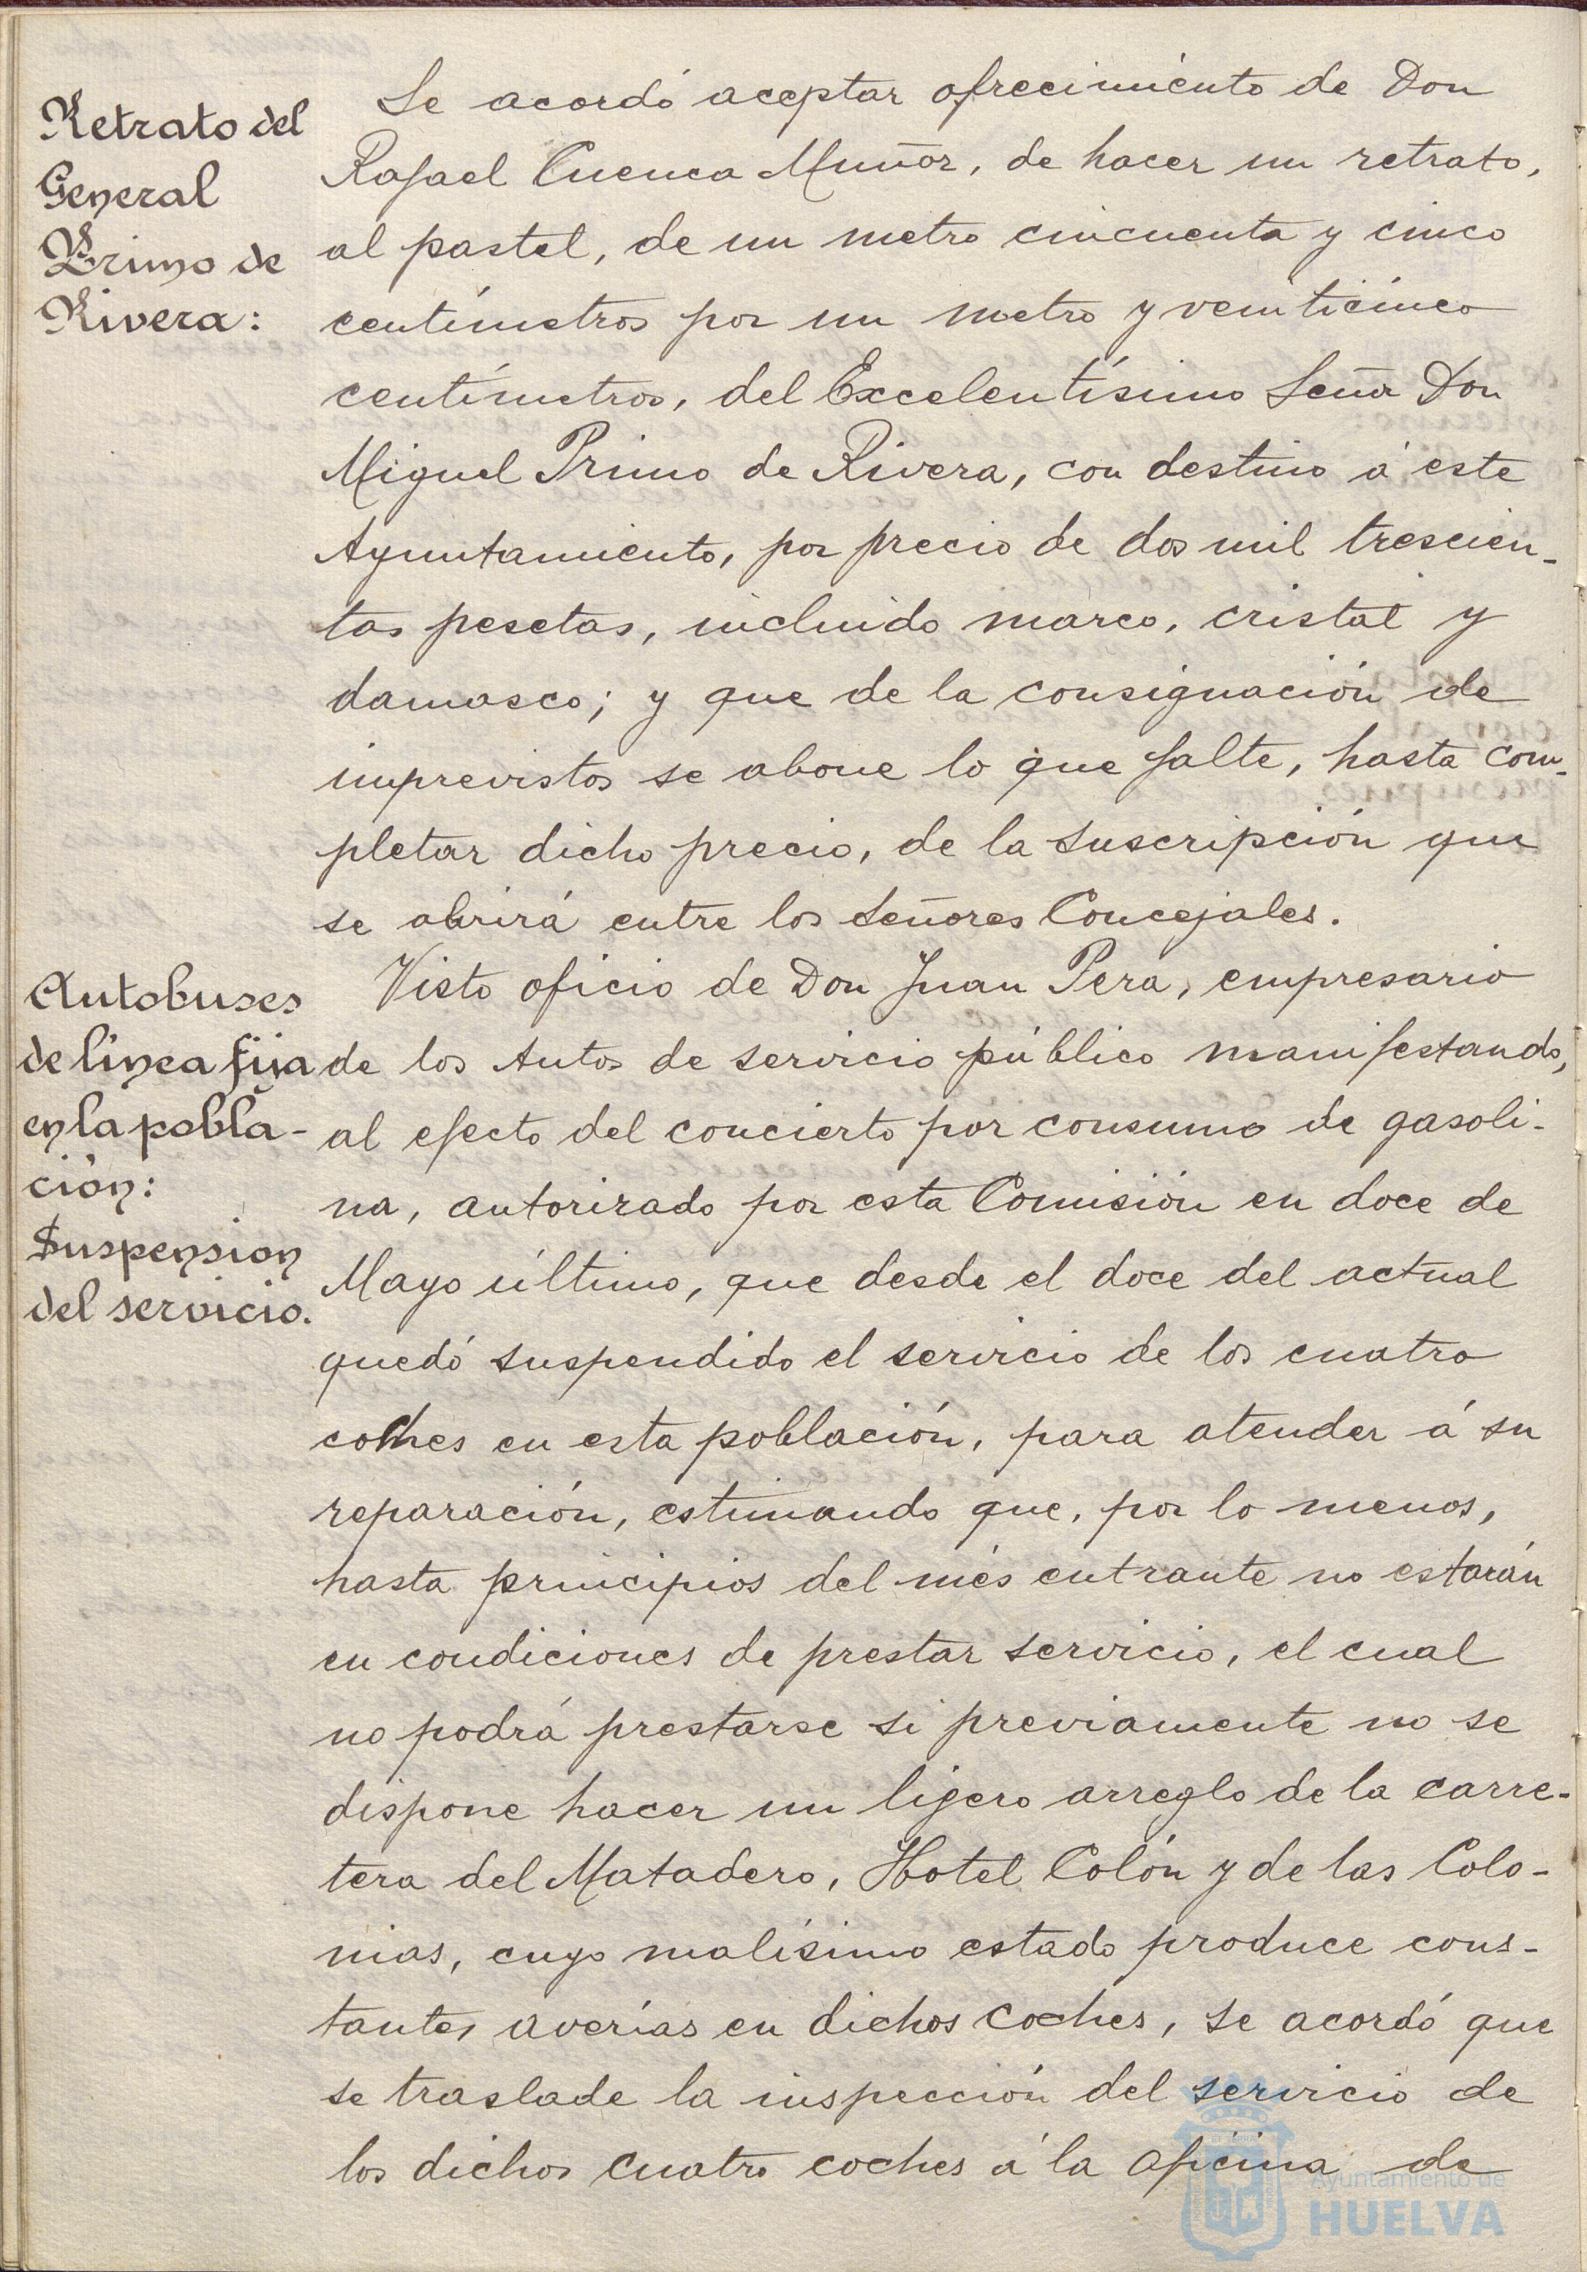 Retrato del
General
Primo de
Rivera:
Se acordó aceptar ofrecimiento de Don
Rafael Cuenca Muñoz, de hacer un retrato,
al pastel, de un metro cincuenta y cinco
centímetros por un metro y veinticinco
centímetros, del Excelentísimo Señor Don
Miguel Primo de Rivera, con destino á este
Ayuntamiento, por precio de dos mil trescien-
tas pesetas, incluido marco, cristal y
damasco; y que de la consignación de
imprevistos se abone lo que falte, hasta com-
pletar dicho precio, de la suscripción que
se abrirá entre los señores Concejales.
Autobuses
de línea fija
en la pobla-
ción:
Suspension
del servicio.
Visto oficio de Don Juan Pera, empresario
de los Autos de servicio público manifestando,
al efecto del concierto por consumo de gasoli-
na, autorizado por esta Comisión en doce de
Mayo último, que desde el doce del actual
quedó suspendido el servicio de los cuatro
coches en esta población, para atender á su
reparación, estimando que, por lo menos,
hasta principios del més entrante no estarán
en condiciones de prestar servicio, el cual
no podrá prestarse si previamente no se
dispone hacer un lijero arreglo de la carre-
tera del Matadero, Hotel Colón y de las Colo-
nias, cuyo malísimo estado produce cons-
tantes averías en dichos coches, se acordó que
se traslade la inspección del servicio de
los dichos cuatro coches á la oficina de
Ayuntamiento de
HUELVA